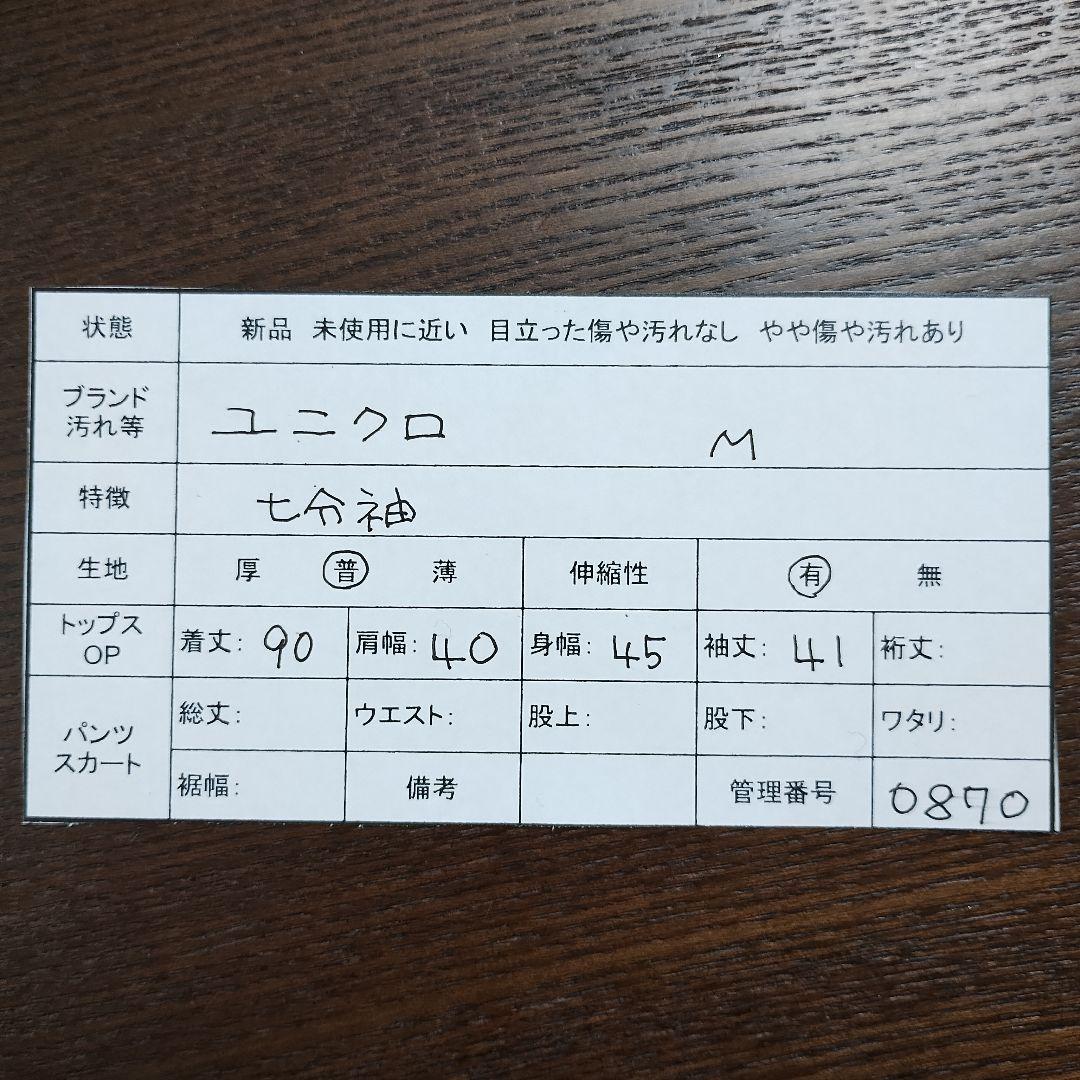 状態 新品 未使用に近い 目立った傷や汚れなし やや傷や汚れあり
ブランド
汚れ等 ユニクロ M
特徴 七分袖
生地 厚 普 薄 伸縮性 有 無
トップス
OP 着丈: 90 肩幅: 40 身幅: 45 袖丈: 41 裄丈:
パンツ
スカート 総丈: ウエスト: 股上: 股下: ワタリ:
裾幅: 備考 管理番号 0870